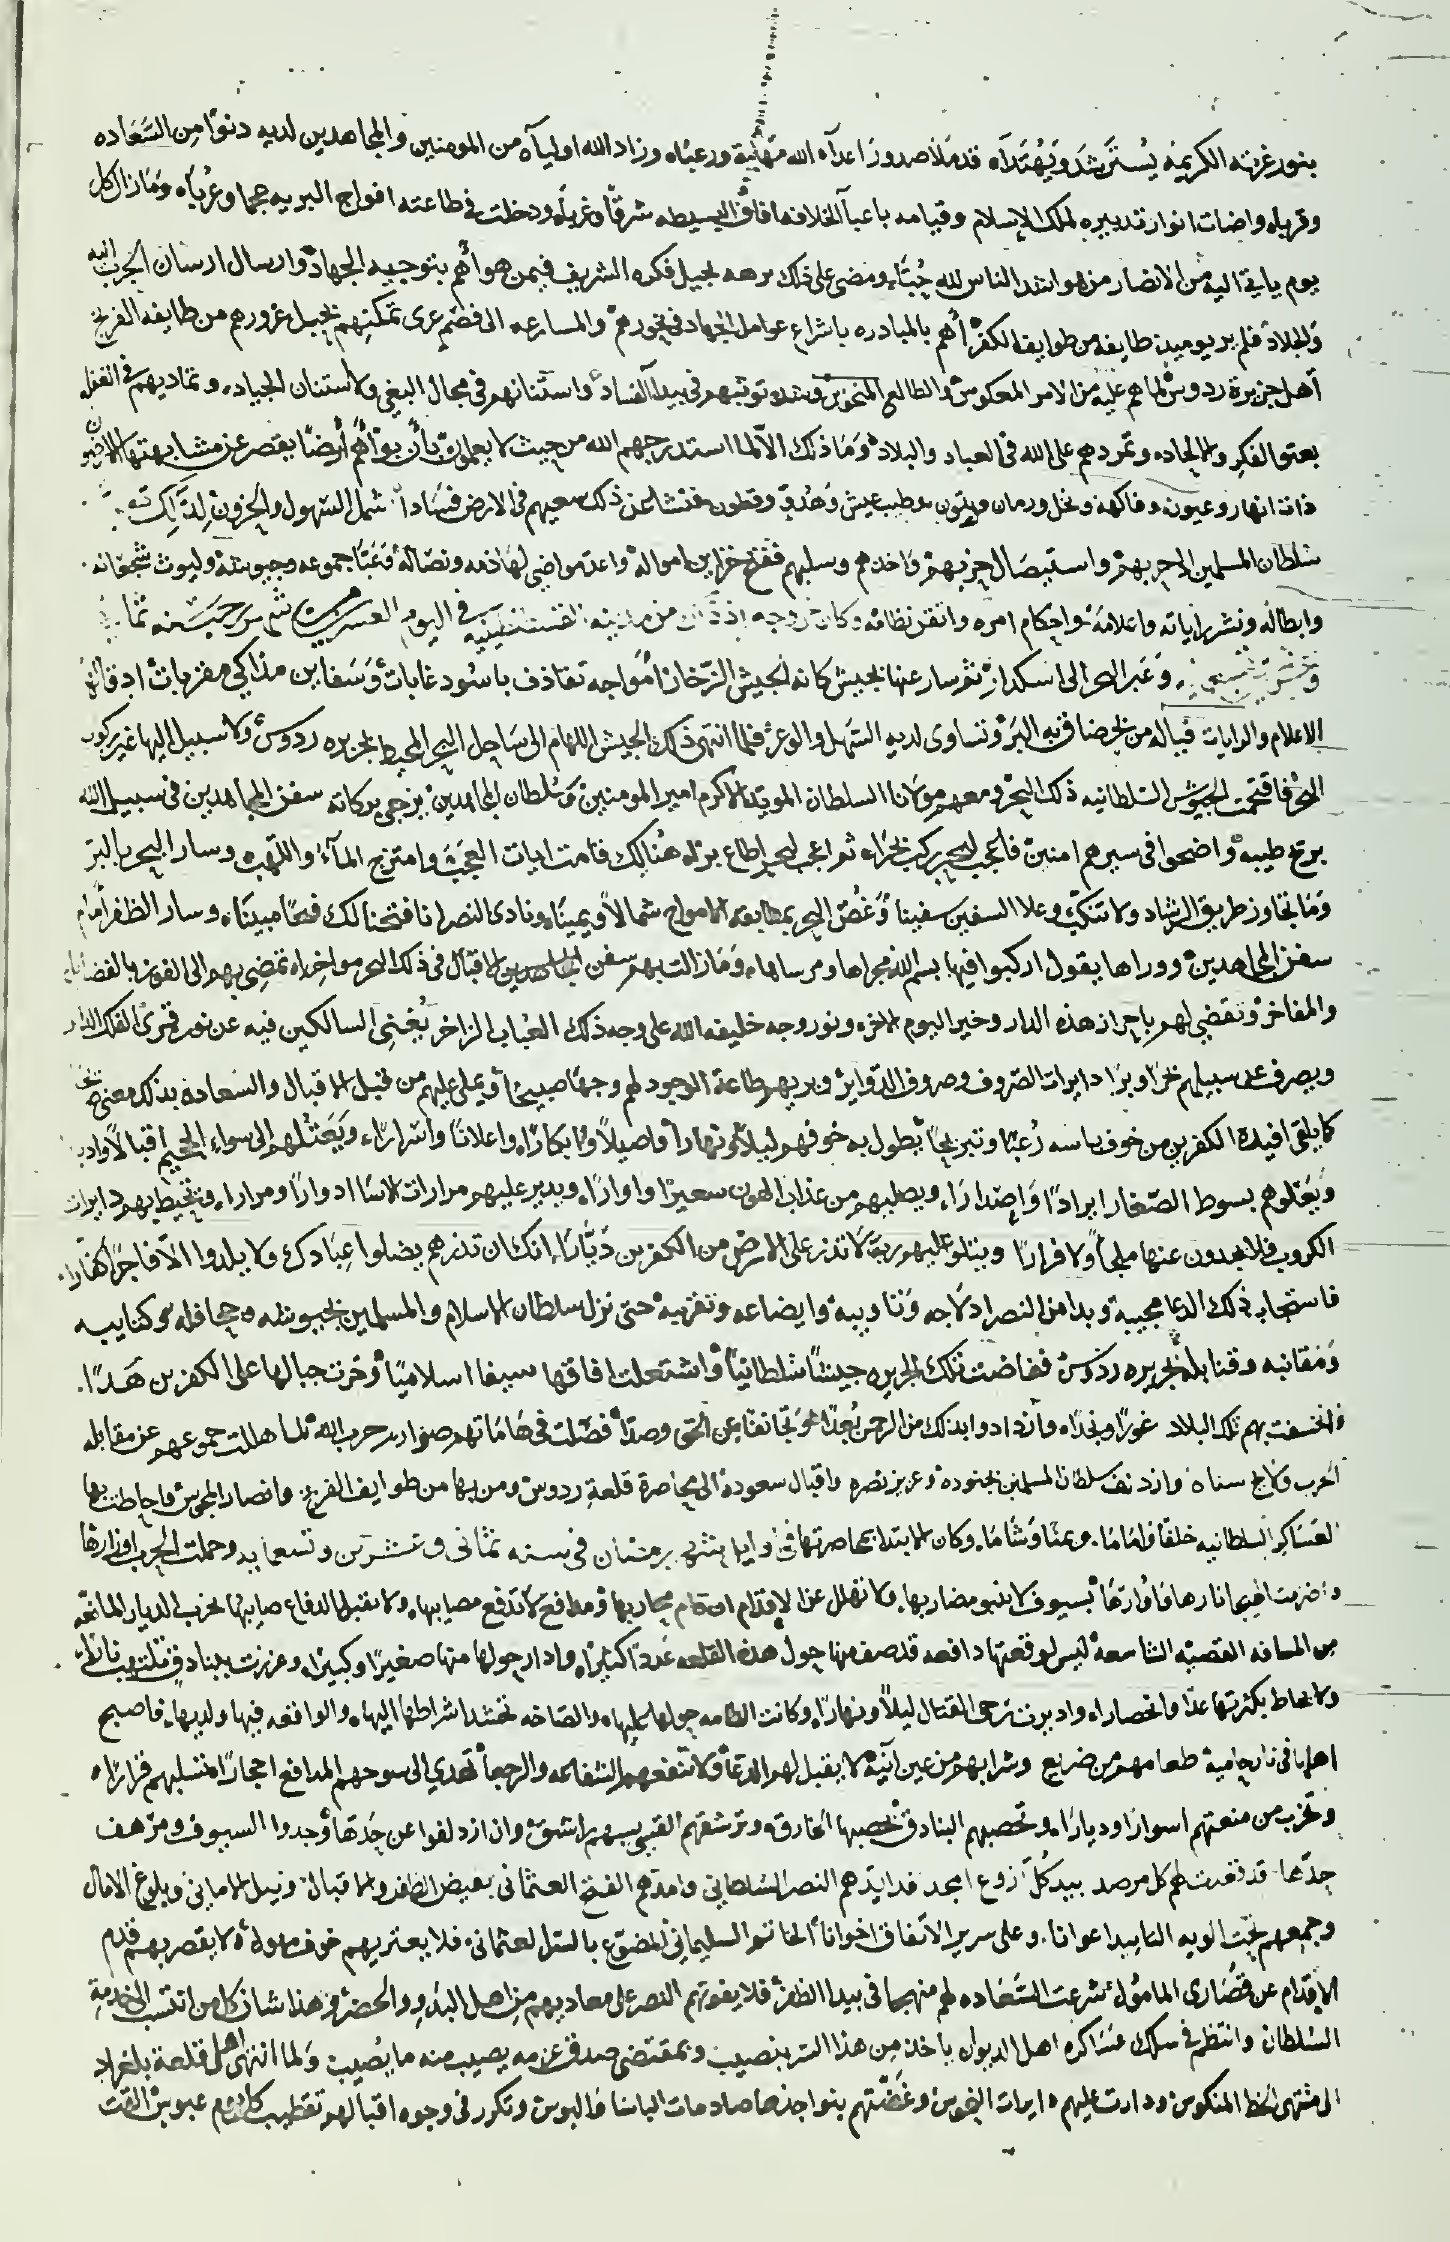 بنور غرته الكريمة يُسترشد ويُهتداه قد ملأ صدور اعداء الله مهابة ورعباه وزاد الله اولياه من المومنين والمجاهدين لديه دنوا من السعاده
وقرباه واضات انوار تدبيره لملك الاسلام وقيامه باعبآ الخلافه افاق البسيطه شرقا وغرباه ودخلت في طاعته افواج البريه عجما وعُرباه وما زال كل
يوم ياتي اليه من الانصار من هو اشد الناس لله حُبّاء ومضى على ذلك برهه يجيل فكره الشريف فيمن هو أهم بتوجيه الجهاد وارسال ارسان الحرب اليه
والجلاد فلم ير يوميذ طايفه من طوايف الكفر أهم بالمبادره باشراع عوامل الجهاد في نحورهم والمسارعه الى فصم عرى تمكنهم بحبل غرورهم من طايفه الفرنج
أهل جزيرة ردوس لما هم عليه من الامر المعكوس والطالع المنحوس وشده توثبهم في بيدآ الفساد واستنانهم في مجال البغي ولا استنان الجياده وتماديهم في الغفله
بعتو الفكر والالحاده وتمردهم على الله في العباد والبلاد وما ذلك الا لما استدرجهم الله من حيث لا يعلمون بأن بوأهم أرضا يقصر عن مشابهتها الارضون
ذات انهار وعيون وفاكهة ونخل ورمان وزيتون وطيب عيش وهُدوّ وقطون فنشا عن ذلك سعيهم في الارض فسادا شمل السهول والحزون لذلك
سلطان المسلمين الى حربهم واستيصال حزبهم واخذهم وسلبهم ففتح خزاين امواله واعد مواضي لهاذمه ونصاله وعبّا جموعه وجيوشه وليوث شجعانه
وابطاله ونشر راياته واعلامه واحكام امره واتقن نظامه وكان خروجه اذ ذاك من مدينه القسطنطينيه في اليوم العشرين من شهر رجب سنه ثمان
وعشرين وتسعمايه وعَبر البحر الى اسكدار ثم سار عنها بجيش كانه الجيش الزخار أمواجه تقاذف باسُود غابات وسفاين مذاكي مقربات
الاعلام والرايات فياله من خضم اقربه البر وتساوى لديه السهل والوعر فلما انتهى ذلك الجيش اللهام الى ساحل البحر المحيط بجزيره ردوس ولا سبيل اليها غير ركوب
البحر فاقتحمت الجيوش السلطانيه ذلك البحر ومعهم مولانا السلطان المويد الاكرم امير المومنين وسُلطان المجاهدين يزجي بركاته سفن المجاهدين في سبيل الله
بريح طيبه واضحوا في سيرهم امنين فاعجب لبحر يركب بحراه ثم اعجب لبحر اطاع برا هنالك قامت ايات العجب وامتزج المآء واللهب وسار البحر بالبر
وما تجاوز طريق الرشاد ولا تنكب وعلا السفين سفينا وغُصّ البحر بمضايقه الامواج شمالا ويميناه ونادى النصر انا فتحنا لك فتحا مبيناه وسار الظفر أمام
سفن المجاهدين ووراها يقول اركبوا فيها بسم الله مجراها ومرساهاه وما زالت بهم سفن الاقبال في ذلك البحر مواخراه تمضي بهم الى الفوز بالفضايل
والمفاخر وتقضي لهم باحراز هذه الدار وخير اليوم الاخره ونور وجه خليفه الله على وجه ذلك العُباب الزاخر يُغني السالكين فيه عن نور قمري الفلك الداير
ويصرف عن سبيلهم بحرا وبرا دايرات الصروف وصروف الدواير ويريهم طاعة الوجود لهم وجها صبيحا ويملي عليهم من قبل الاقبال والسعاده بذلك معنى
كما يلقي افيدة الكفرين من خوف باسه رُعبا وتبريحا يطول به خوفهم ليلا ونهارا واصيلا وابكاراه واعلانا واسراراء ويعتلهم الى سواء الجحيم اقبالا وادبارا
ويعتلوهم بسوط الصغار ايرادا واصداراه ويصليهم من عذاب الهون سعيرا واواراه ويدير عليهم مرارات الاسا ادوارا ومراراه وتحيط بهم دايرات
الكروب فلا يجدون عنها ملجأ ولا فرارا ويتلو عليهم رب لا تذر على الارض من الكفرين دياراء انك ان تذرهم يضلوا عبادك ولا يلدوا الا فاجرا كفارا
فاستجاب ذلك الدعا مجيبه وبدا من النصر ادلاجه وتاويبه وايضاعه وتقريبه حتى نزل سلطان الاسلام والمسلمين بجيوشه وجحافله وكتايبه
ومقانبه وقنابله بجزيره ردوس ففاضت تلك الجزيره جيشا سلطانيا واشتعلت افاقها سيفا اسلاميا وخرت جبالها على الكفرين هَدّا.
وانخسفت بهم تلك البلاد غورا ونجداه وازدادوا بذلك من الرحمن بُعدا وتجانفا عن الحق وصدا فصلت في هاماتهم صوارم حزب الله لما هللت جموعهم عن مقابله
الحرب ولاح سناه وازدلف سلطان المسلمين بجنوده وعزيز نصره واقبال سعوده الى محاصرة قلعة ردوس ومن بها من طوايف الفرنج وانصار المجوس فاحاطت بها
العساكر السلطانيه خلفا واماما. ويمنا وشاماء وكان الابتدا بمحاصرتها في اوايل شهر رمضان في سنه ثماني وعشرين وتسعمايه وحملت الحرب اوزارها
واضرمت الهيجا نارها وأوارها بسيوف لا ينبو مضاربهاه ولا تهلل عن الاقدام ان قام محاربها ومدافع لا تدفع مصايبها ولا يقبل الدفاع صايبها لخرب الديار المانعه
من المسافه القصيه الشاسعه ليس لوقعتها دافعه قد صف منها حول هذه القلعه عددا كثيراه وادار حولها منها صغيرا وكبيراه وعززت ببنادق
ولا يحاط بكثرتها عدا وانحصاراه واديرت رحى القتال ليلا ونهاراه وكانت الطامه حولها عليها والصاخه تحشد اشراطها اليهاه والواقعه فيها ولديهاء فاصبح
اهلها في نار حامية طعامهم من ضريع وشرابهم من عين آنية لا يقبل لهم الدعا ولا تنفعهم الشفاعه والرجعا تهدي الى سوحهم المدافع احجارا لتسلبهم قراراء
وتخرب من منعتهم اسوارا وديارا وتحصبهم البنادق بحصبها الخارقه وترشقهم القسي بسهم راشق وان ازدلفوا عن جدها وجدوا السيوف ومرهف
حدها قد قعدت لهم كل مرصد بيد كل أروع امجد قد ايدهم النصر السلطاني وامدهم الفتح العثماني بفيض الظفر والاقبال ونيل الاماني وبلوغ الامال
وجمعهم تحت الويه التاييد اعوانا. وعلى سرير الاتفاق اخوانا الخاتم السليماني المضوع بالسر العثماني. فلا يعتريهم خوف ولا يقصر بهم قدم
الاقدام عن قصارى المامول شرعت السعاده لهم منهجا في بيدا الظفر فلا يفوتهم النصر على معاديهم من اهل البدو والحضر وهذا شان كل من انتسب الى خدمة
السلطان وانتظم في سلك عساكره اهل الديوان ياخذ من هذا السر بنصيب وبمقتضى صدق عزمه يصيب منه ما يصيب ولما انتهى اهل قلعة بلغراد
الى منتهى الحظ المنكوس ودارت عليهم دايرات النحوس وعضتهم بنواجذها صادمات الباسا والبوس وتكرر في وجوه اقبالهم تقطيب كل يوم عبوس القت